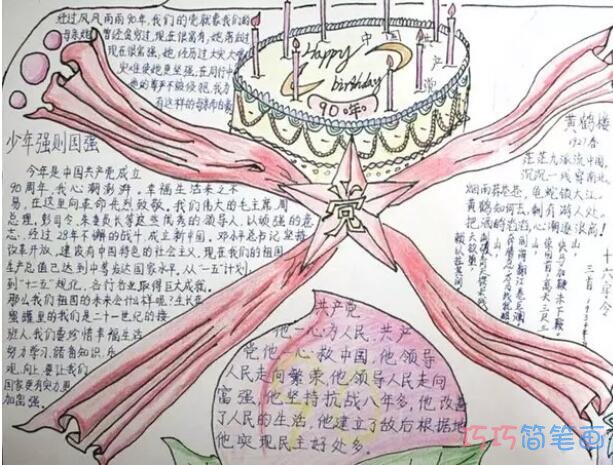 经过风风雨雨90年，我们的党就象我们的
中国共产党
Happy
birthday
90年
少年强则国强
今年是中国共产党成立
90周年，我心潮澎湃。幸福生活来之不
易，在这里向革命先烈致敬，我们伟大的毛主席，周
总理，彭司令，朱委员长等这些优秀的领导人，以顽强的意
志，经过28年不懈的战斗，成立新中国。邓小平总书记坚持
改革开放，建设有中国特色的社会主义，现在我们的祖国
生产总值已达到中等发达国家水平，从“一五”计划，
到“十二五”规化，各行各业取得巨大成就。
那么我们祖国的未来会什么样呢？生长在
蜜罐里的我们是二十一世纪的接
班人，我们要珍惜幸福生活
努力学习，储备知识，乐
观，向上，要让我们
国家更有实力更
加富强。
党
共产党
他一心为人民，共产
党他一心救中国，他领导
人民走向繁荣，他领导人民走向
富强，他坚持抗战八年多，他改善
了人民的生活，他建立了敌后根据地
他实现民主好处多。
黄鹤楼
1927春
茫茫九派流中国，
沉沉一线穿南北。
烟雨莽苍苍，龟蛇锁大江。
黄鹤知何去，剩有游人处。
把酒酹滔滔，心潮逐浪高！
十六字令
三首
山
快马加鞭未下鞍。
惊回首，离天三尺三
山
巧巧简笔画